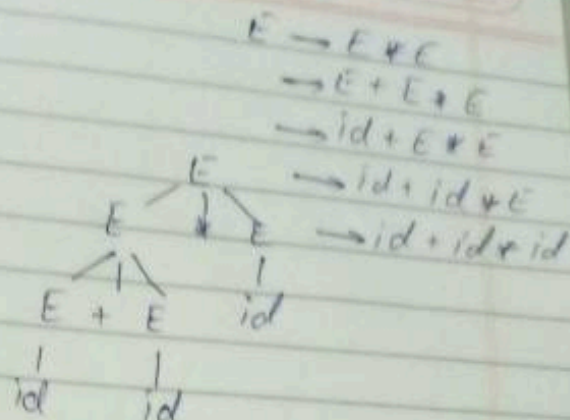 E → E * E
→ E + E * E
→ id + E * E
→ id + id * E
→ id + id * id
E
E * E
E + E id
id id